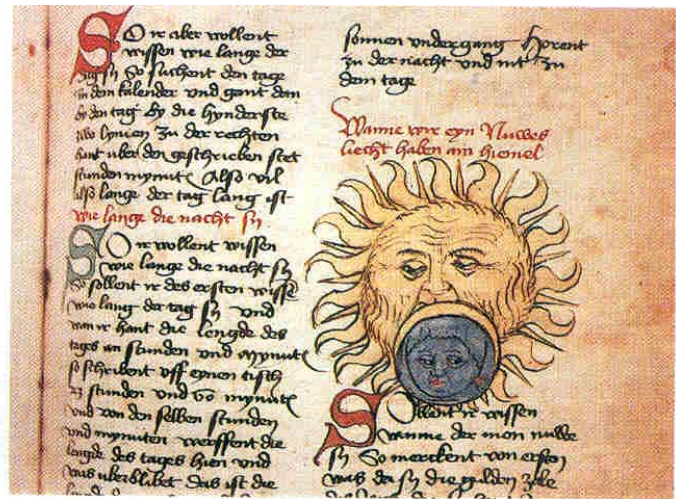 SO ir aber wollent
wissen wie lange der
tag sy So suchent den tage
in dem kalender vnd gant dan
by den tag by die hynderste
zwo lynien zu der rechten
hant uber den geschrieben stet
stunden mynut Also vil
also lange der tag lang ist
wie lange die nacht sy
SO ir wollent wissen
wie lange die nacht sy
So sollent ir des ersten wisse
wie lang der tag sy vnd
wan ir hant die lengde des
tages an stunden vnd mynut
so schribent vff eynen tisch
23 stunden vnd 60 mynut
vnd von den selben stunden
vnd mynuten werffent die
lengde des tages hien vnd
was uberblibet das ist die
sonnen vndergang horent
zu der nacht vnd nit zu
dem tage
Wanne wir eyn Nuwes
liecht haben am hiemel
SOllent ir wissen
wanne der mon nuwe
sy So merckent von ersten
was da sy die gulden zale